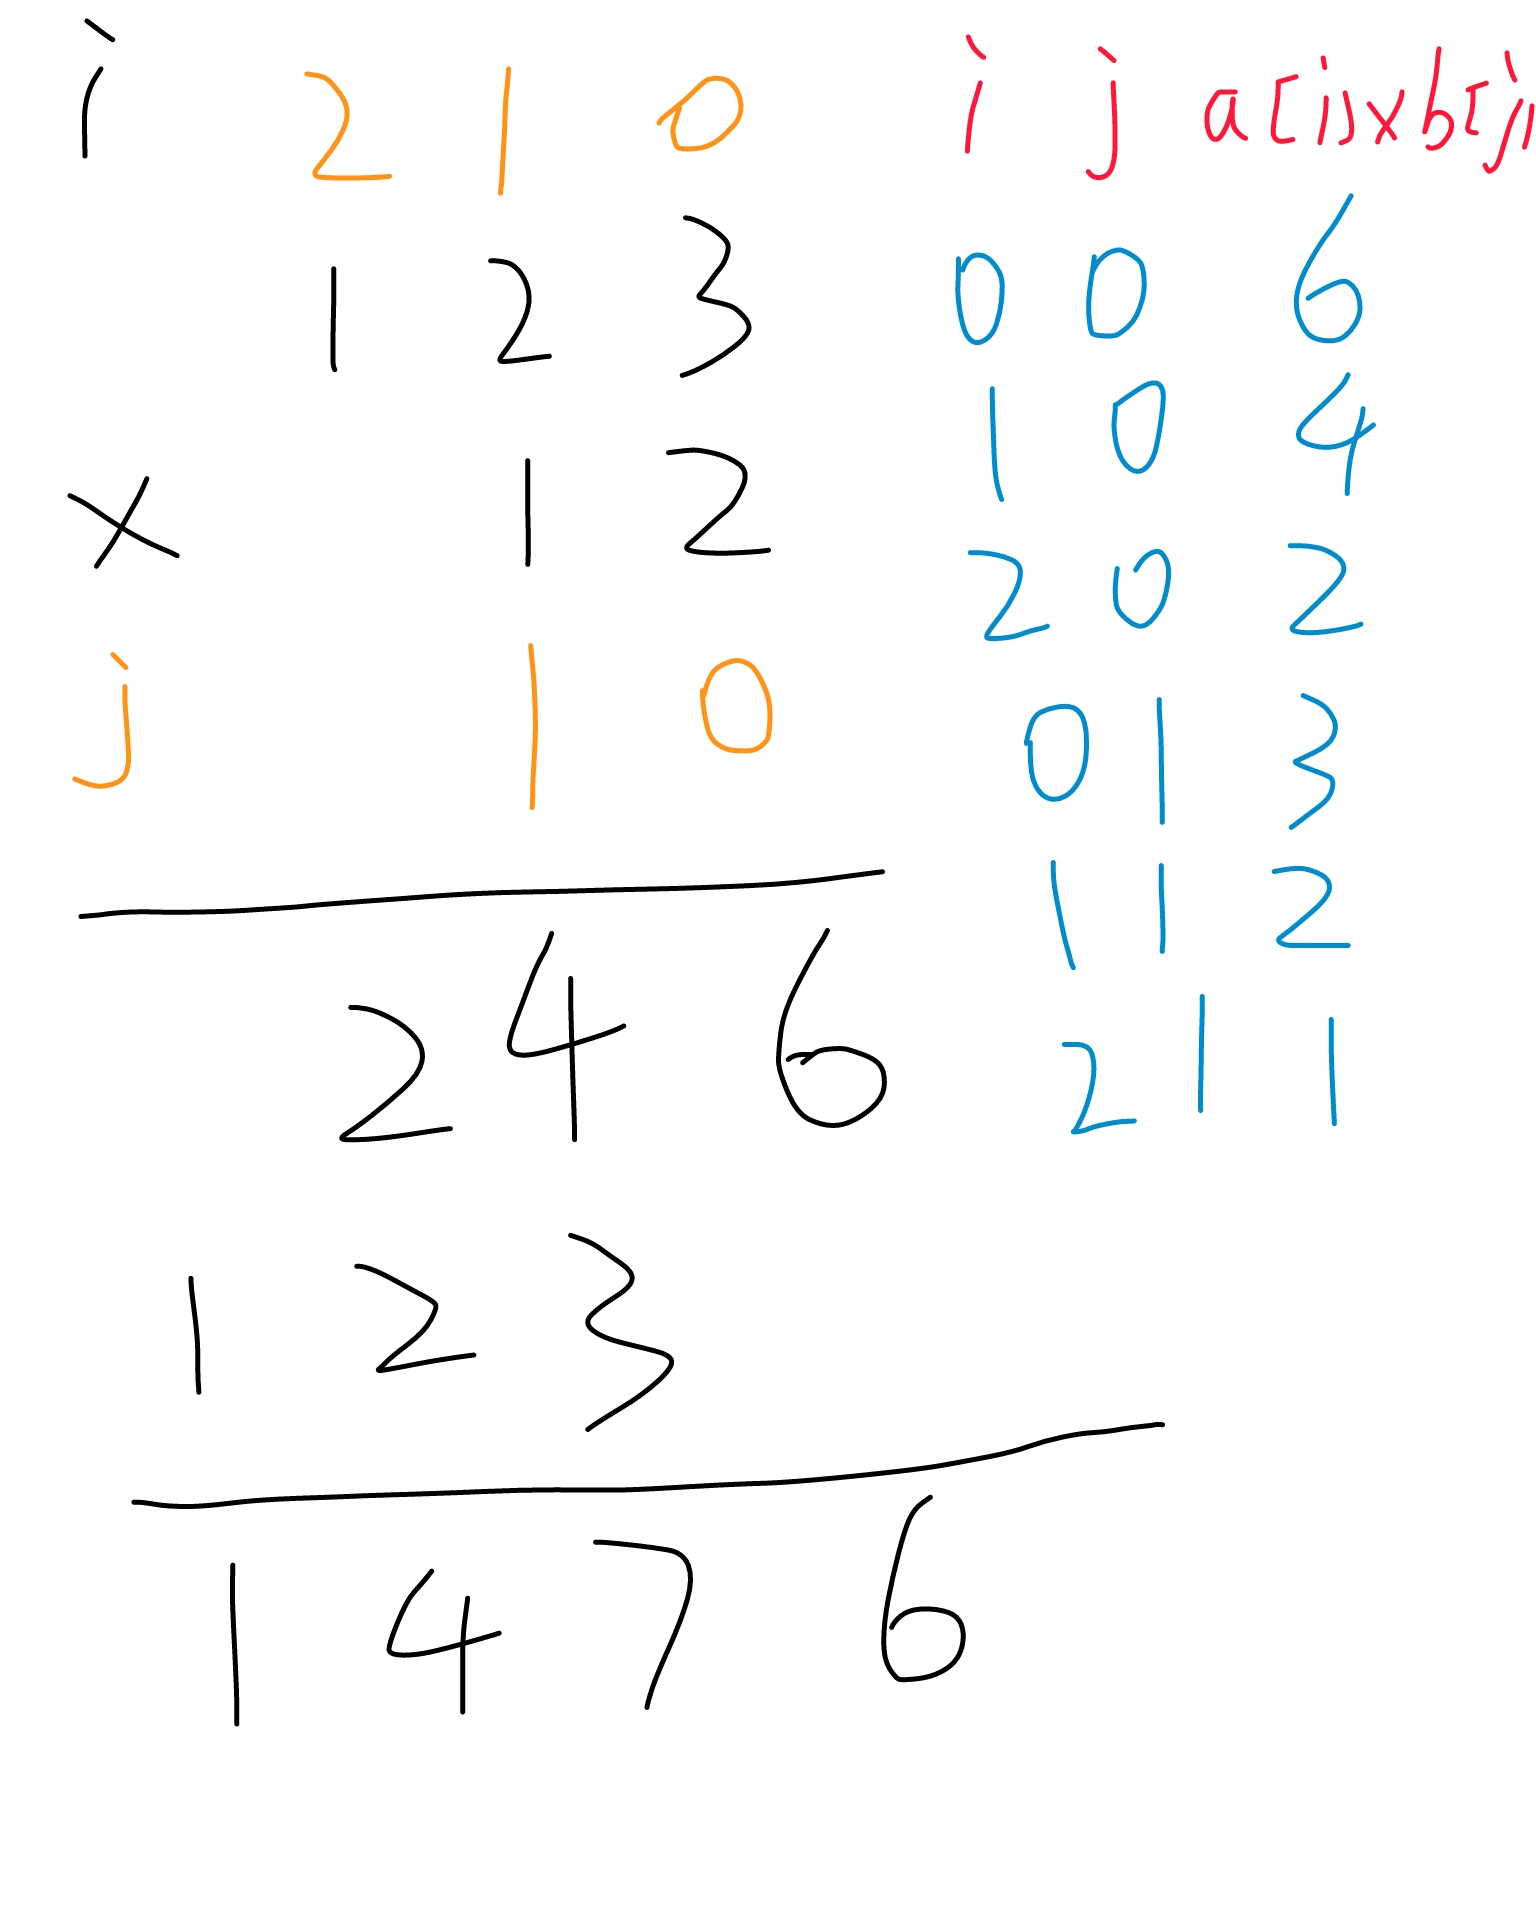 i 2 1 0
1 2 3
x 1 2
j 1 0
2 4 6
1 2 3
1 4 7 6
i j a[i]xb[j]
0 0 6
1 0 4
2 0 2
0 1 3
1 1 2
2 1 1